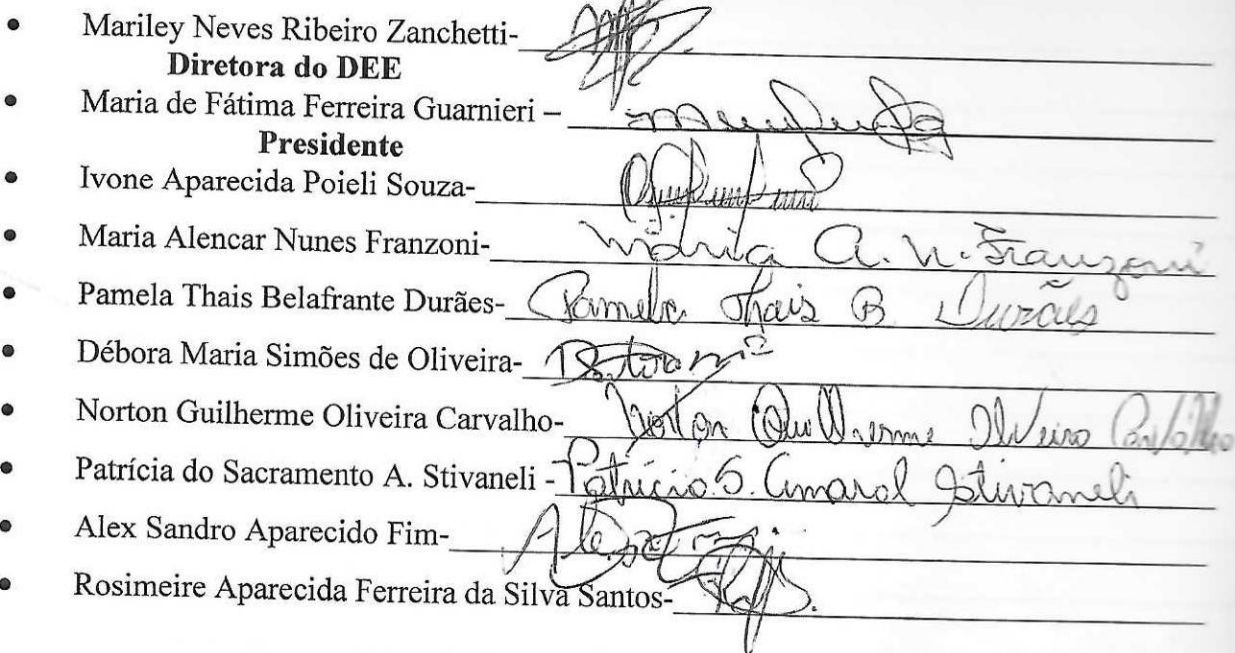 • Mariley Neves Ribeiro Zanchetti-
Diretora do DEE
• Maria de Fátima Ferreira Guarnieri –
Presidente
• Ivone Aparecida Poieli Souza-
• Maria Alencar Nunes Franzoni- Maria A. N. Franzoni
• Pamela Thais Belafrante Durães- Pamela Thais B. Durães
• Débora Maria Simões de Oliveira- Débora Mª
• Norton Guilherme Oliveira Carvalho- Norton Guilherme Oliveira Carvalho
• Patrícia do Sacramento A. Stivaneli - Patrícia S. Amaral Stivaneli
• Alex Sandro Aparecido Fim-
• Rosimeire Aparecida Ferreira da Silva Santos-